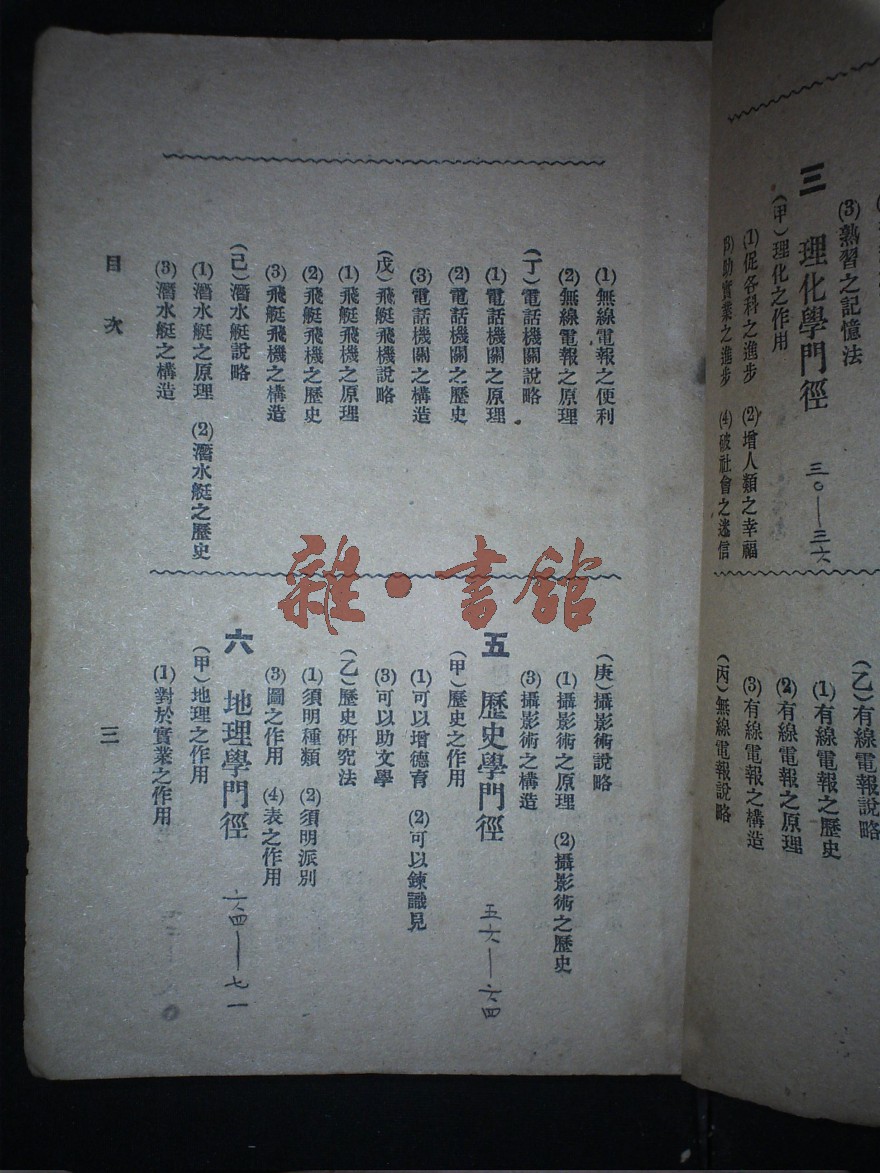 (3)熟習之記憶法
三 理化學門徑 三〇—三六
(甲)理化之作用
(1)促各科之進步 (2)增人類之幸福
(3)助實業之進步 (4)破社會之迷信
(乙)有線電報說略
(1)有線電報之歷史
(2)有線電報之原理
(3)有線電報之構造
(丙)無線電報說略
(1)無線電報之便利
(2)無線電報之原理
(丁)電話機關說略
(1)電話機關之原理
(2)電話機關之歷史
(3)電話機關之構造
(戊)飛艇飛機說略
(1)飛艇飛機之原理
(2)飛艇飛機之歷史
(3)飛艇飛機之構造
(己)潛水艇說略
(1)潛水艇之原理 (2)潛水艇之歷史
(3)潛水艇之構造
(庚)攝影術說略
(1)攝影術之原理 (2)攝影術之歷史
(3)攝影術之構造
五 歷史學門徑 五六—六四
(甲)歷史之作用
(1)可以增德育 (2)可以鍊識見
(3)可以助文學
(乙)歷史研究法
(1)須明種類 (2)須明派別
(3)圖之作用 (4)表之作用
六 地理學門徑 六四—七一
(甲)地理之作用
(1)對於實業之作用
目次
三
雜·書館